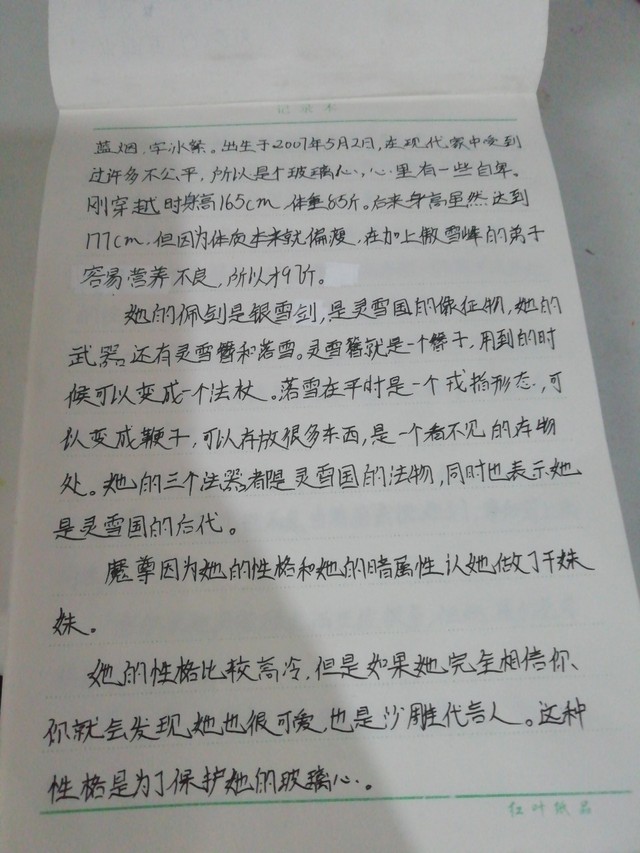 记录本
蓝烟，字冰綮。出生于2007年5月2日，在现代家中受到
过许多不公平，所以是个玻璃心，心里有一些自卑。
刚穿越时身高165cm，体重85斤。后来身高虽然达到
177cm，但因为体质本来就偏瘦，在加上傲雪峰的弟子
容易营养不良，所以才97斤。
她的佩剑是银雪剑，是灵雪国的像征物，她的
武器还有灵雪簪和落雪。灵雪簪就是一个簪子，用到的时
候可以变成一个法杖。落雪在平时是一个戒指形态，可
以变成鞭子，可以存放很多东西，是一个看不见的存物
处。她的三个法器都是灵雪国的法物，同时也表示她
是灵雪国的后代。
魔尊因为她的性格和她的暗属性认她做了干妹
妹。
她的性格比较高冷，但是如果她完全相信你、
你就会发现她也很可爱，也是沙雕代言人。这种
性格是为了保护她的玻璃心。
红叶纸品